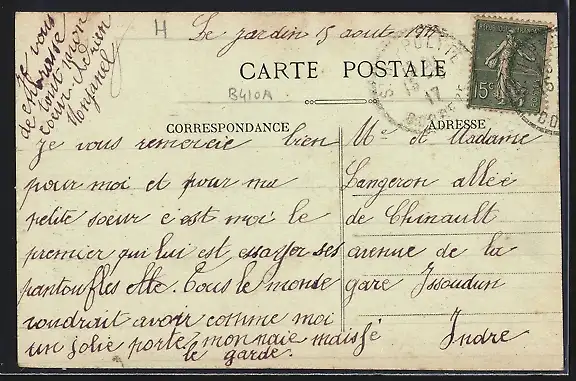 H
Le jardin 15 aout 1917
CARTE POSTALE
B410A
CORRESPONDANCE
ADRESSE
Je vous
de embrasse
tout mon
coeur Adrien
Monfanel
Je vous remercie bien
pour moi et pour ma
petite soeur c est moi le
premier qui lui est essayer ses
pantoufles elle. Tous le monde
voudrait avoir comme moi
un jolie porte monnaie mais je
le garde.
Mr et Madame
Langeron allée
de Chinault
avenue de la
gare Issoudun
Indre
15c
17